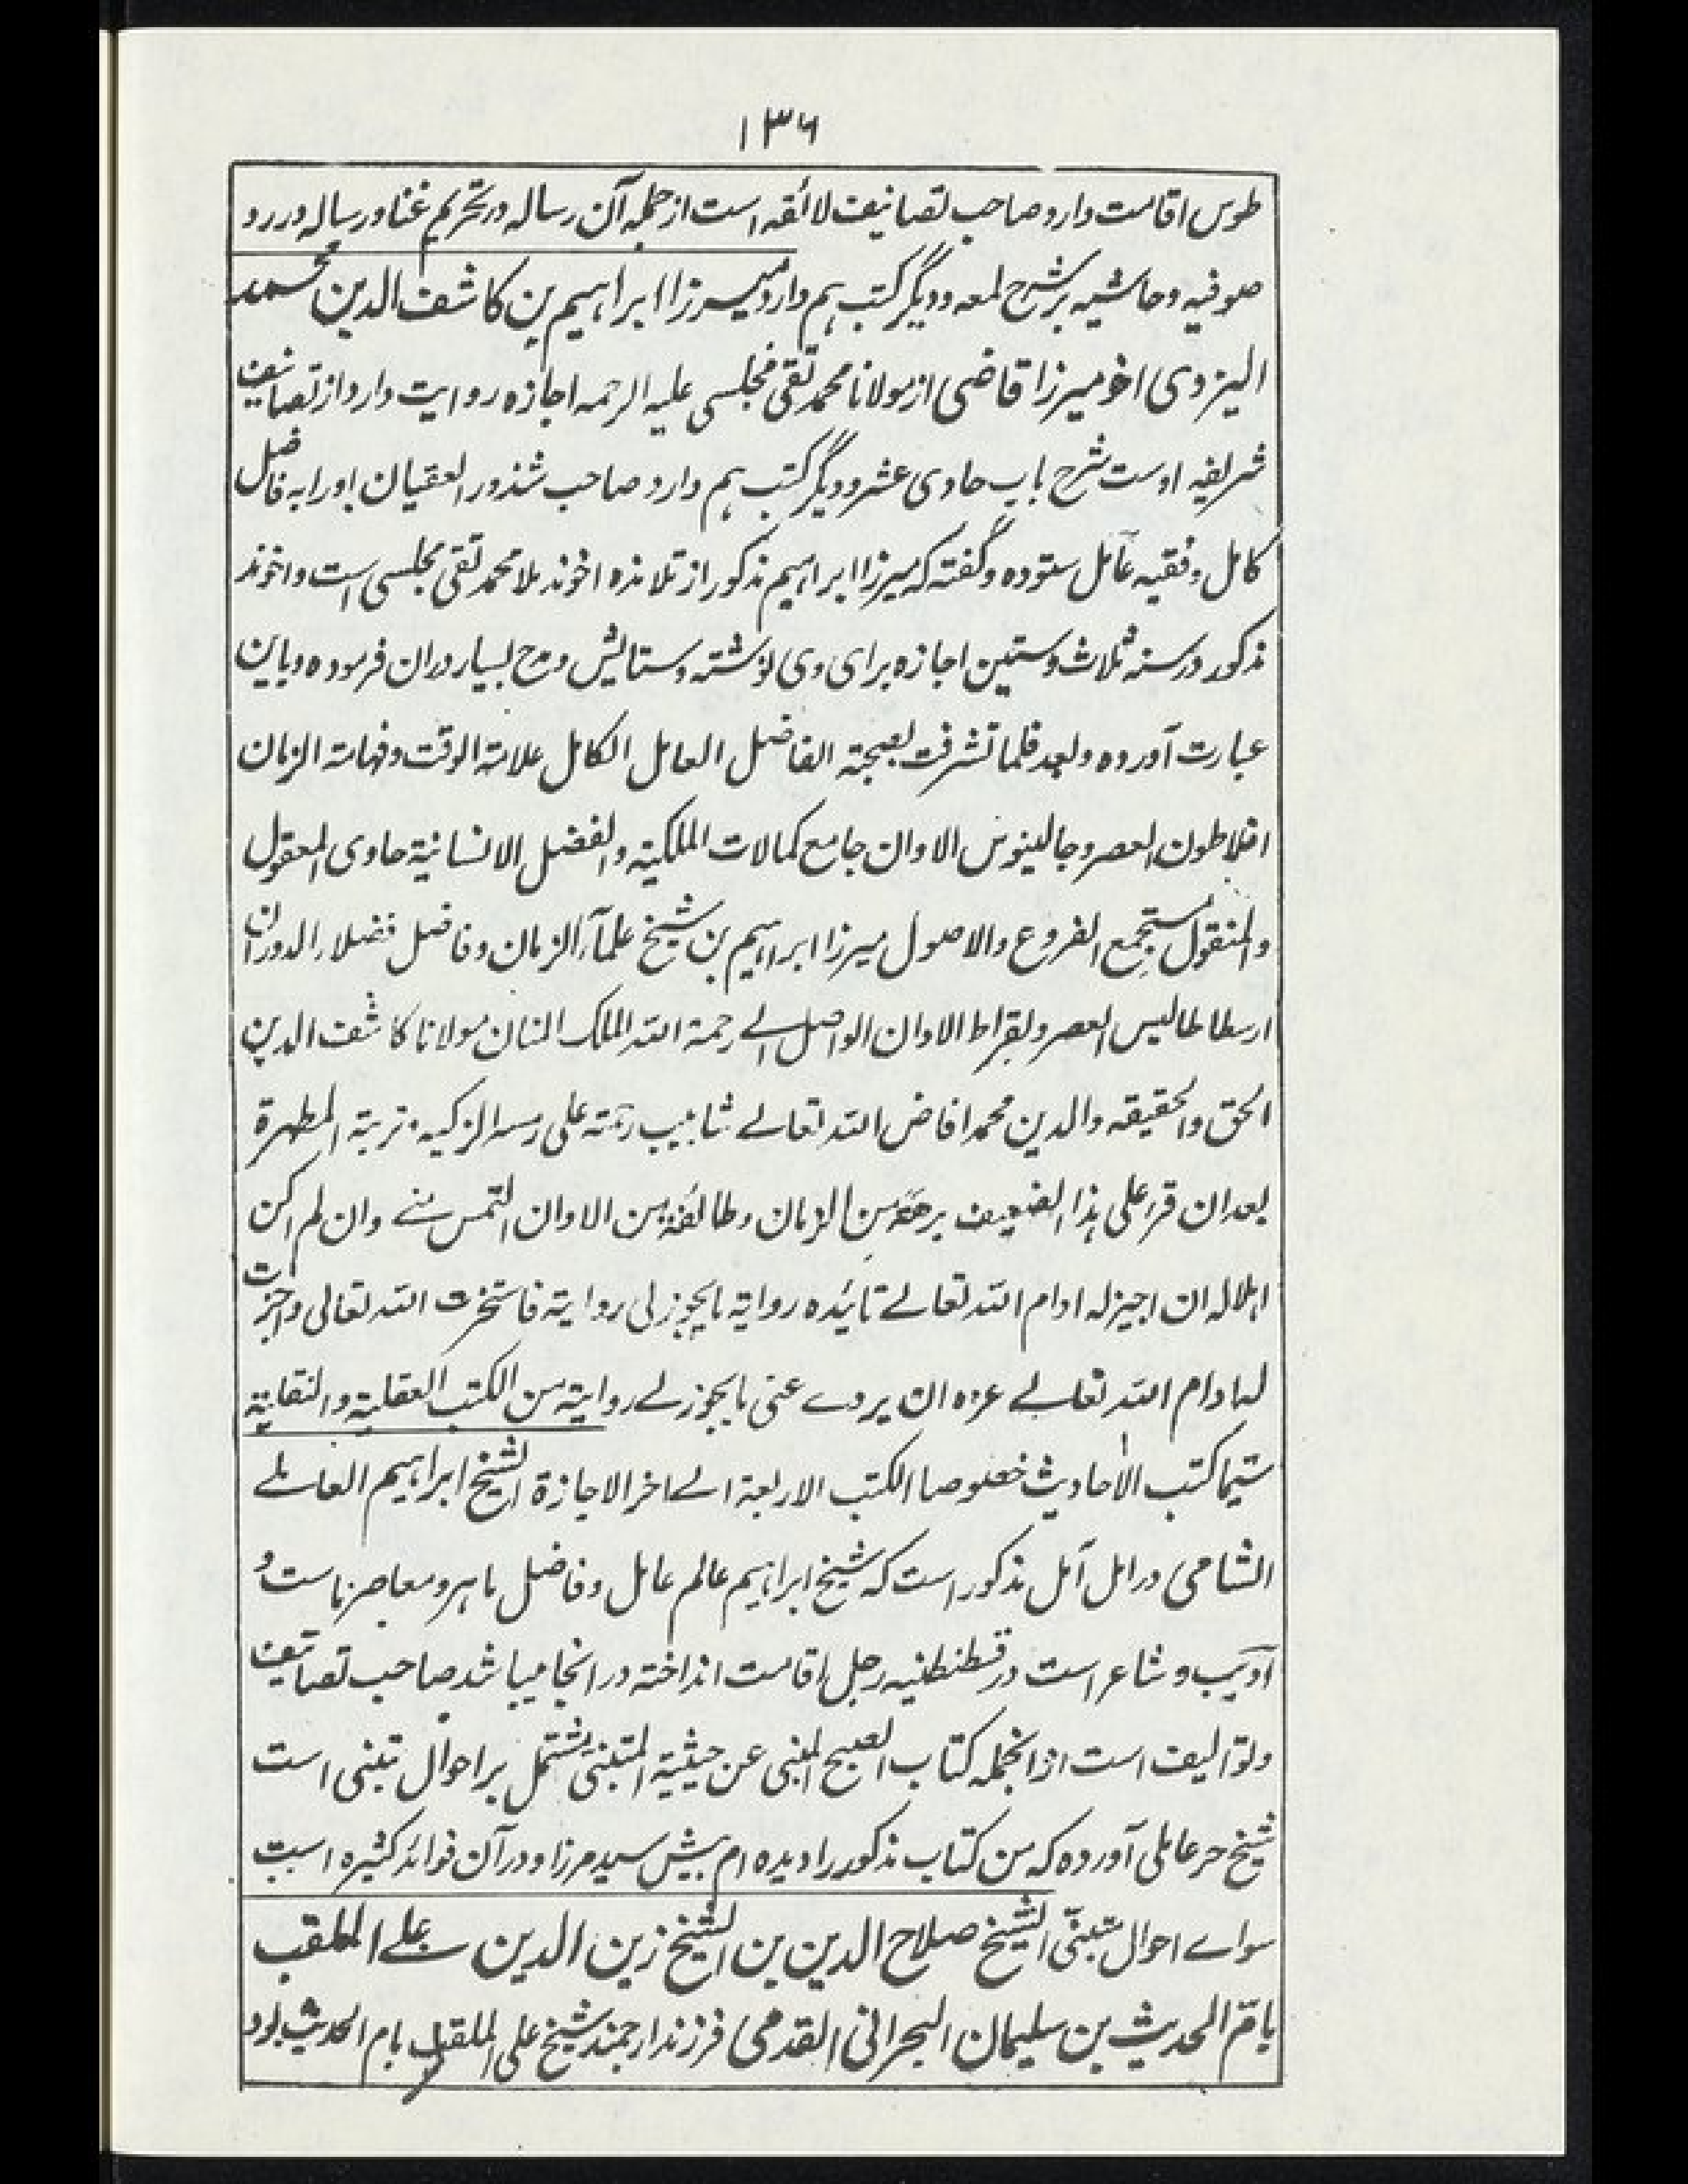 ۱۳۶
طوس اقامت دارد صاحب تصانیف لائقه است ازجمله آن رساله در تحریم غنا و رساله در رد
صوفیه و حاشیه بر شرح لمعه و دیگر کتب هم دارد میرزا ابراهیم بن کاشف الدین محمد
الیزدی اخو میرزا قاضی از مولانا محمد تقی مجلسی علیه الرحمه اجازه روایت دارد از تصانیف
شریفه اوست شرح باب حاوی عشر و دیگر کتب هم دارد صاحب شذور العقیان اورا به فاضل
کامل و فقیه عامل ستوده و گفته که میرزا ابراهیم مذکور از تلامذه اخوند ملا محمد تقی مجلسی است و اخوند
مذکور در سنه ثلاث و ستین اجازه برای وی نوشته و ستایش و مدح بسیار دران فرموده و باین
عبارت آورده و بعد فلما تشرفت بصحبة الفاضل العامل الکامل علامة الوقت و فهامة الزمان
افلاطون العصر و جالینوس الاوان جامع کمالات الملکیة و الفضل الانسانیة حاوی المعقول
و المنقول مستجمع الفروع و الاصول میرزا ابراهیم بن شیخ علمآء الزمان و فاضل فضلاء الدوران
ارسطاطالیس العصر و بقراط الاوان الواصل الے رحمة الله الملک المنان مولانا کاشف الدین
الحق و الحقیقه و الدین محمد افاض الله تعالے شابیب رحمته علی رمسه الزکیه و تربة المطهرة
بعد ان قرء علی هذا الضعیف برهة من الزمان و طائفة من الاوان التمس منے و ان لم اکن
اهلا له ان اجیز له ادام الله تعالے تائده روایة ما یجوز لی روایة فاستخرت الله تعالی و اجزت
له ادام الله تعالے عزه ان یردے عنی ما یجوز لے روایة من الکتب العقلیة و النقلیة
سیّما کتب الاحادیث خصوصا الکتب الاربعة الے اخر الاجازة الشیخ ابراهیم العاملے
الشامی در امل آمل مذکور است که شیخ ابراهیم عالم عامل و فاضل ماهر و معاصر ماست و
ادیب و شاعر است در قسطنطنیه رحل اقامت انداخته در انجا میباشد صاحب تصانیف
و توالیف است ازانجمله کتاب الصبح المنبی عن حیثیة المتنبی مشتمل بر احوال متنبی است
شیخ حر عاملی آورده که من کتاب مذکور را دیده ام پیش سید میرزا و در آن فوائد کثیره است
سواے احوال متنبّی الشیخ صلاح الدین بن الشیخ زین الدین علے الملقب
بامّ الحدیث بن سلیمان البحرانی القدمی فرزند ارجمند شیخ علی الملقب بام الحدیث بود